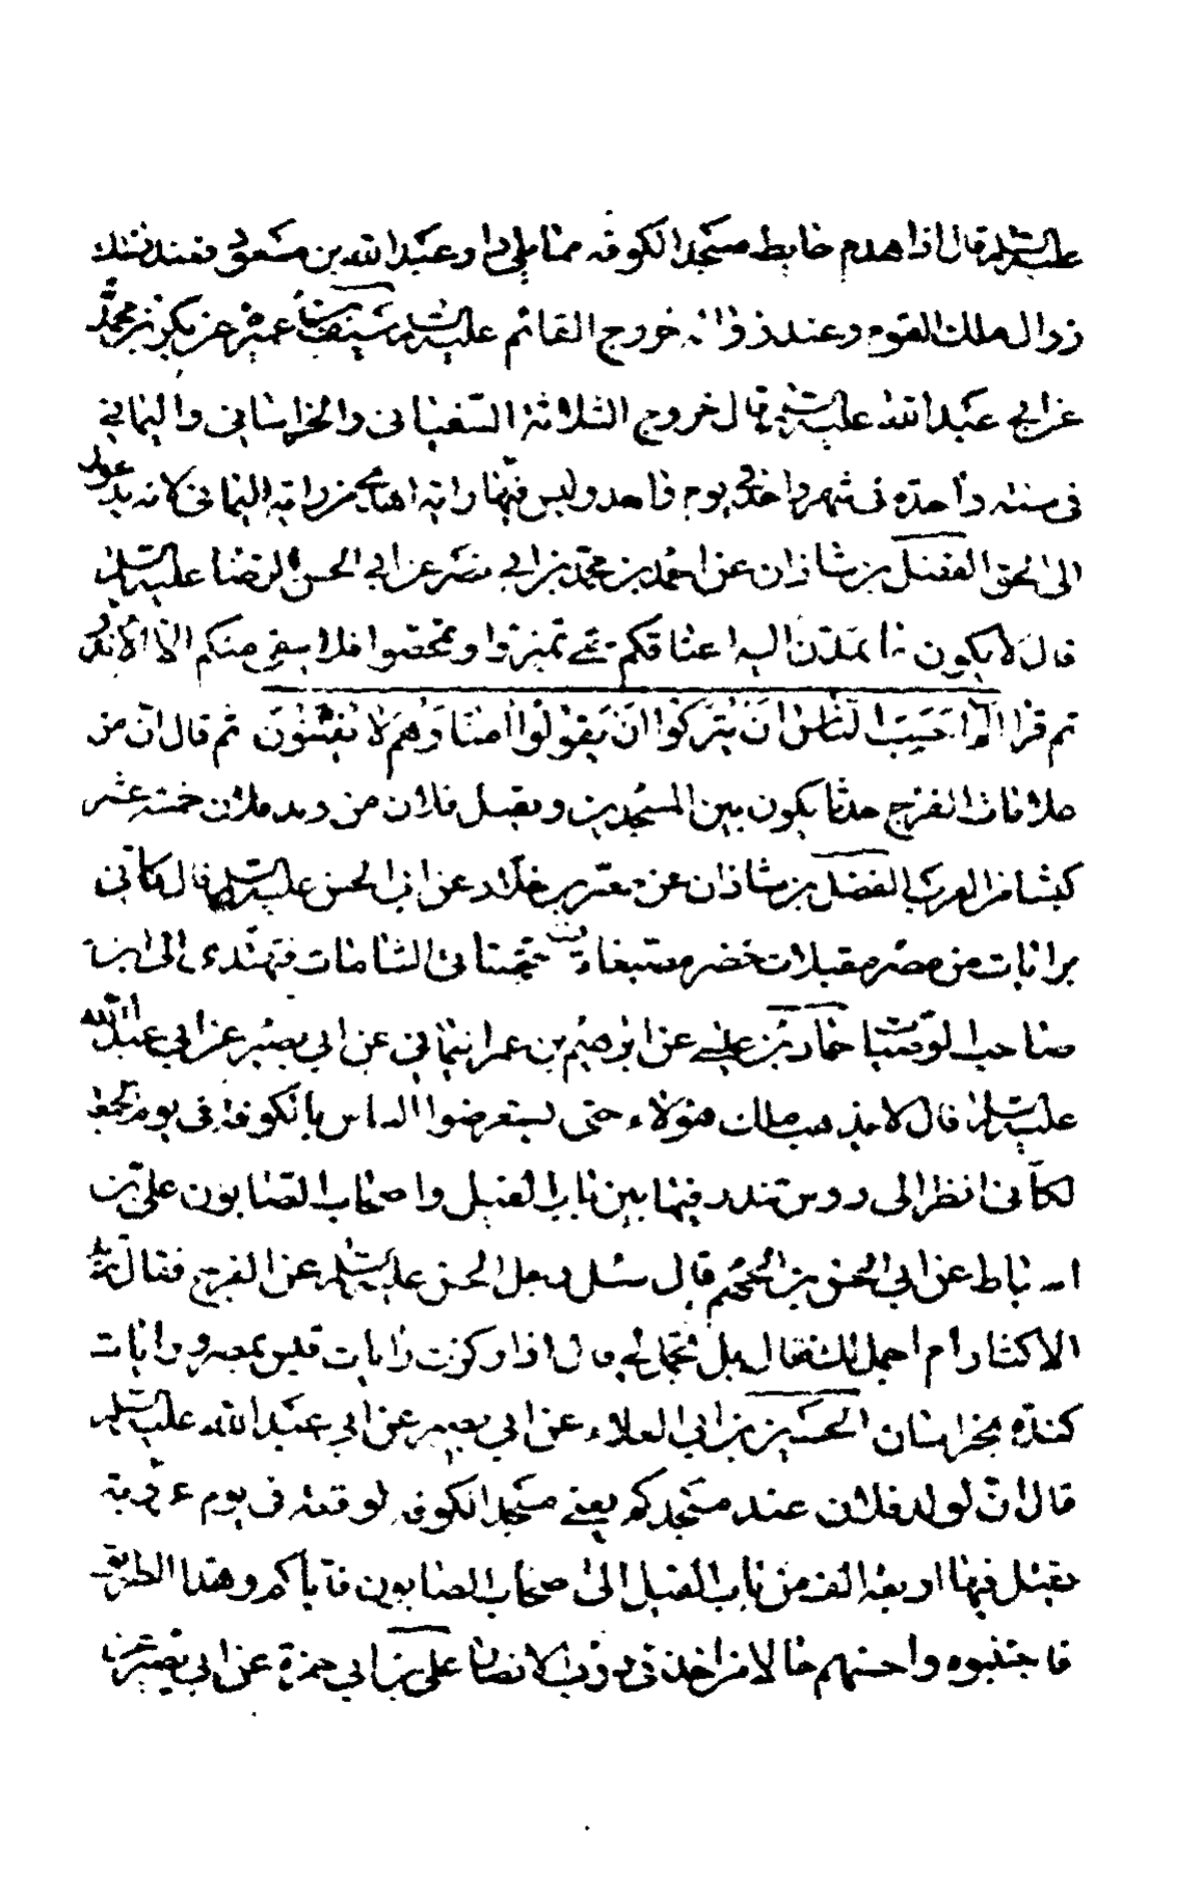 عليه السلم قال اذا هدم حايط مسجد الكوفه مما يلي دار عبد الله بن مسعود فعند ذلك
زوال ملك القوم وعند زواله خروج القائم عليه السلم سيف بن عميرة عن بكر بن محمد
عن ابي عبد الله عليه السلم قال خروج الثلاثة السفياني والخراساني واليماني
في سنة واحدة في شهر واحد في يوم واحد وليس فيها راية اهدى من راية اليماني لانه يدعو
الى الحق الفضل بن شاذان عن احمد بن محمد بن ابي نصر عن ابي الحسن الرضا عليه السلم
قال لا يكون ما تمدون اليه اعناقكم حتى تميزوا وتمحصوا فلا يبقى منكم الا الاندر
ثم قرا الم احسب الناس ان يتركوا ان يقولوا امنا وهم لا يفتنون ثم قال ان من
علامات الفرج حدثا يكون بين المسجدين ويقتل فلان من ولد فلان خمسة عشر
كبشا من العرب الفضل بن شاذان عن معمر بن خلاد عن ابي الحسن عليه السلم قال كاني
برايات من مصر مقبلات خضر مصبغات حتى تاتي الشامات فتهدى الى ابن
صاحب الوصيات حماد بن عيسى عن ابرهيم بن عمر اليماني عن ابي بصير عن ابي عبد الله
عليه السلم قال لا يذهب ملك هؤلاء حتى يستعرضوا الناس بالكوفة في يوم الجمعة
لكاني انظر الى روس تندر فيما بين باب الفيل واصحاب الصابون علي بن
اسباط عن ابي الحسن بن الجهم قال سئل رجل ابا الحسن عليه السلم عن الفرج فقال تريد
الاكثار ام اجمل لك فقال بل تجمل لي قال اذا ركزت رايات قيس بمصر ورايات
كندة بخراسان الحسين بن ابي العلاء عن ابي بصير عن ابي عبد الله عليه السلم
قال ان لولد فلان عند مسجدكم يعني مسجد الكوفه لوقعة في يوم عروبة
يقتل فيها اربعة الف من باب الفيل الى اصحاب الصابون فاياكم وهذا الطريق
فاجتنبوه واحسنهم حالا من اخذ في درب الانصار علي بن ابي حمزة عن ابي بصير عن